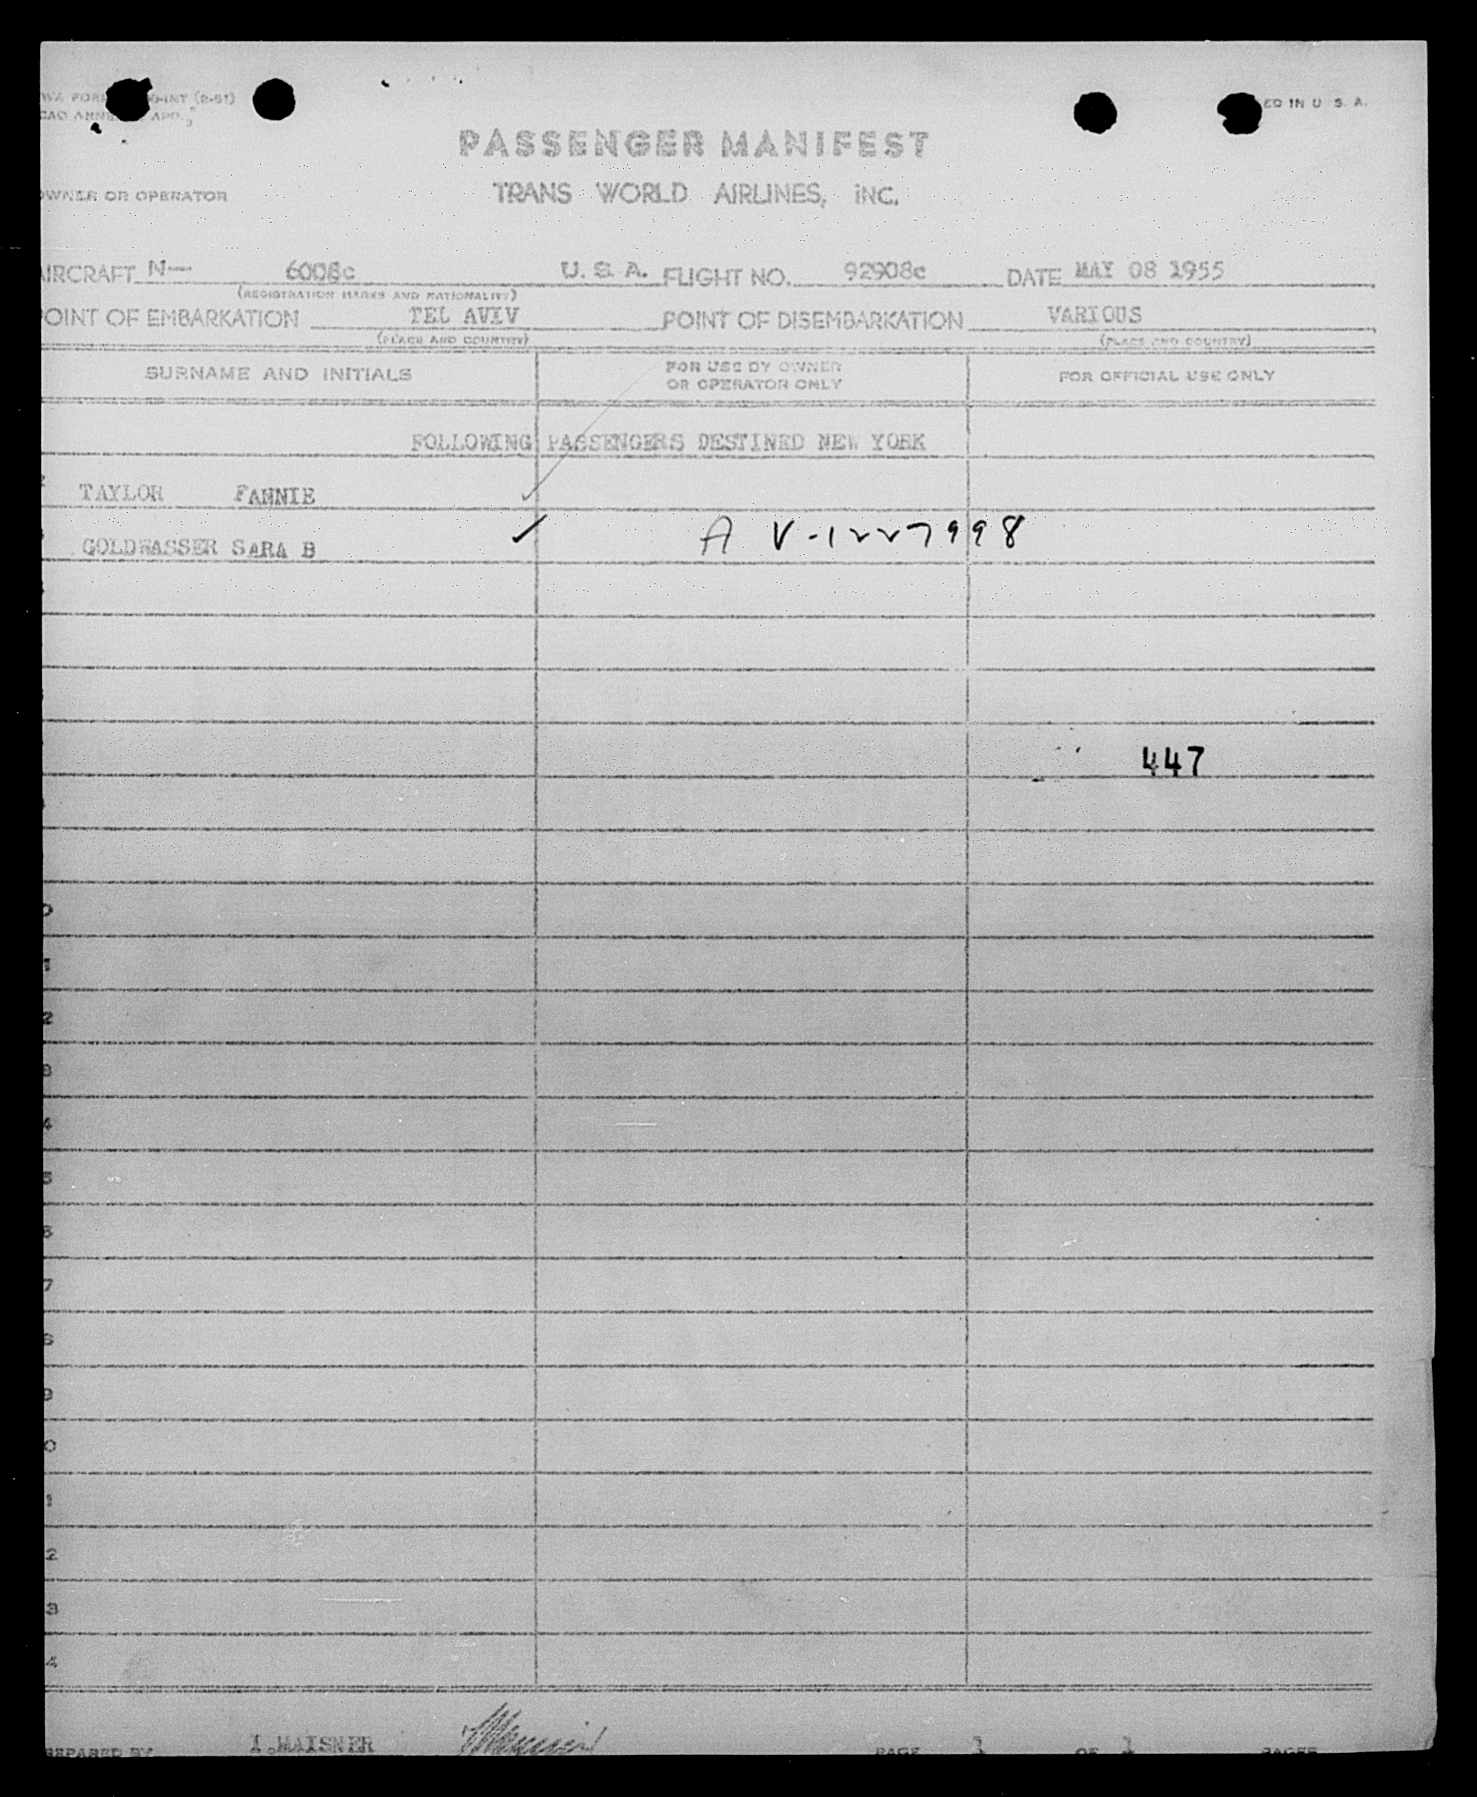 PASSENGER MANIFEST
OWNER OR OPERATOR TRANS WORLD AIRLINES, INC.
AIRCRAFT N— 6008c U. S. A. FLIGHT NO. 92908c DATE MAY 08 1955
(REGISTRATION MARKS AND NATIONALITY)
POINT OF EMBARKATION TEL AVIV POINT OF DISEMBARKATION VARIOUS
(PLACE AND COUNTRY) (PLACE AND COUNTRY)
SURNAME AND INITIALS FOR USE BY OWNER OR OPERATOR ONLY FOR OFFICIAL USE ONLY
FOLLOWING PASSENGERS DESTINED NEW YORK
2 TAYLOR FANNIE
GOLDWASSER SARA B A V-1227998
447
0
1
2
3
4
5
6
7
8
9
0
1
2
3
4
PREPARED BY I.MAISNER PAGE 1 OF 1 PAGES